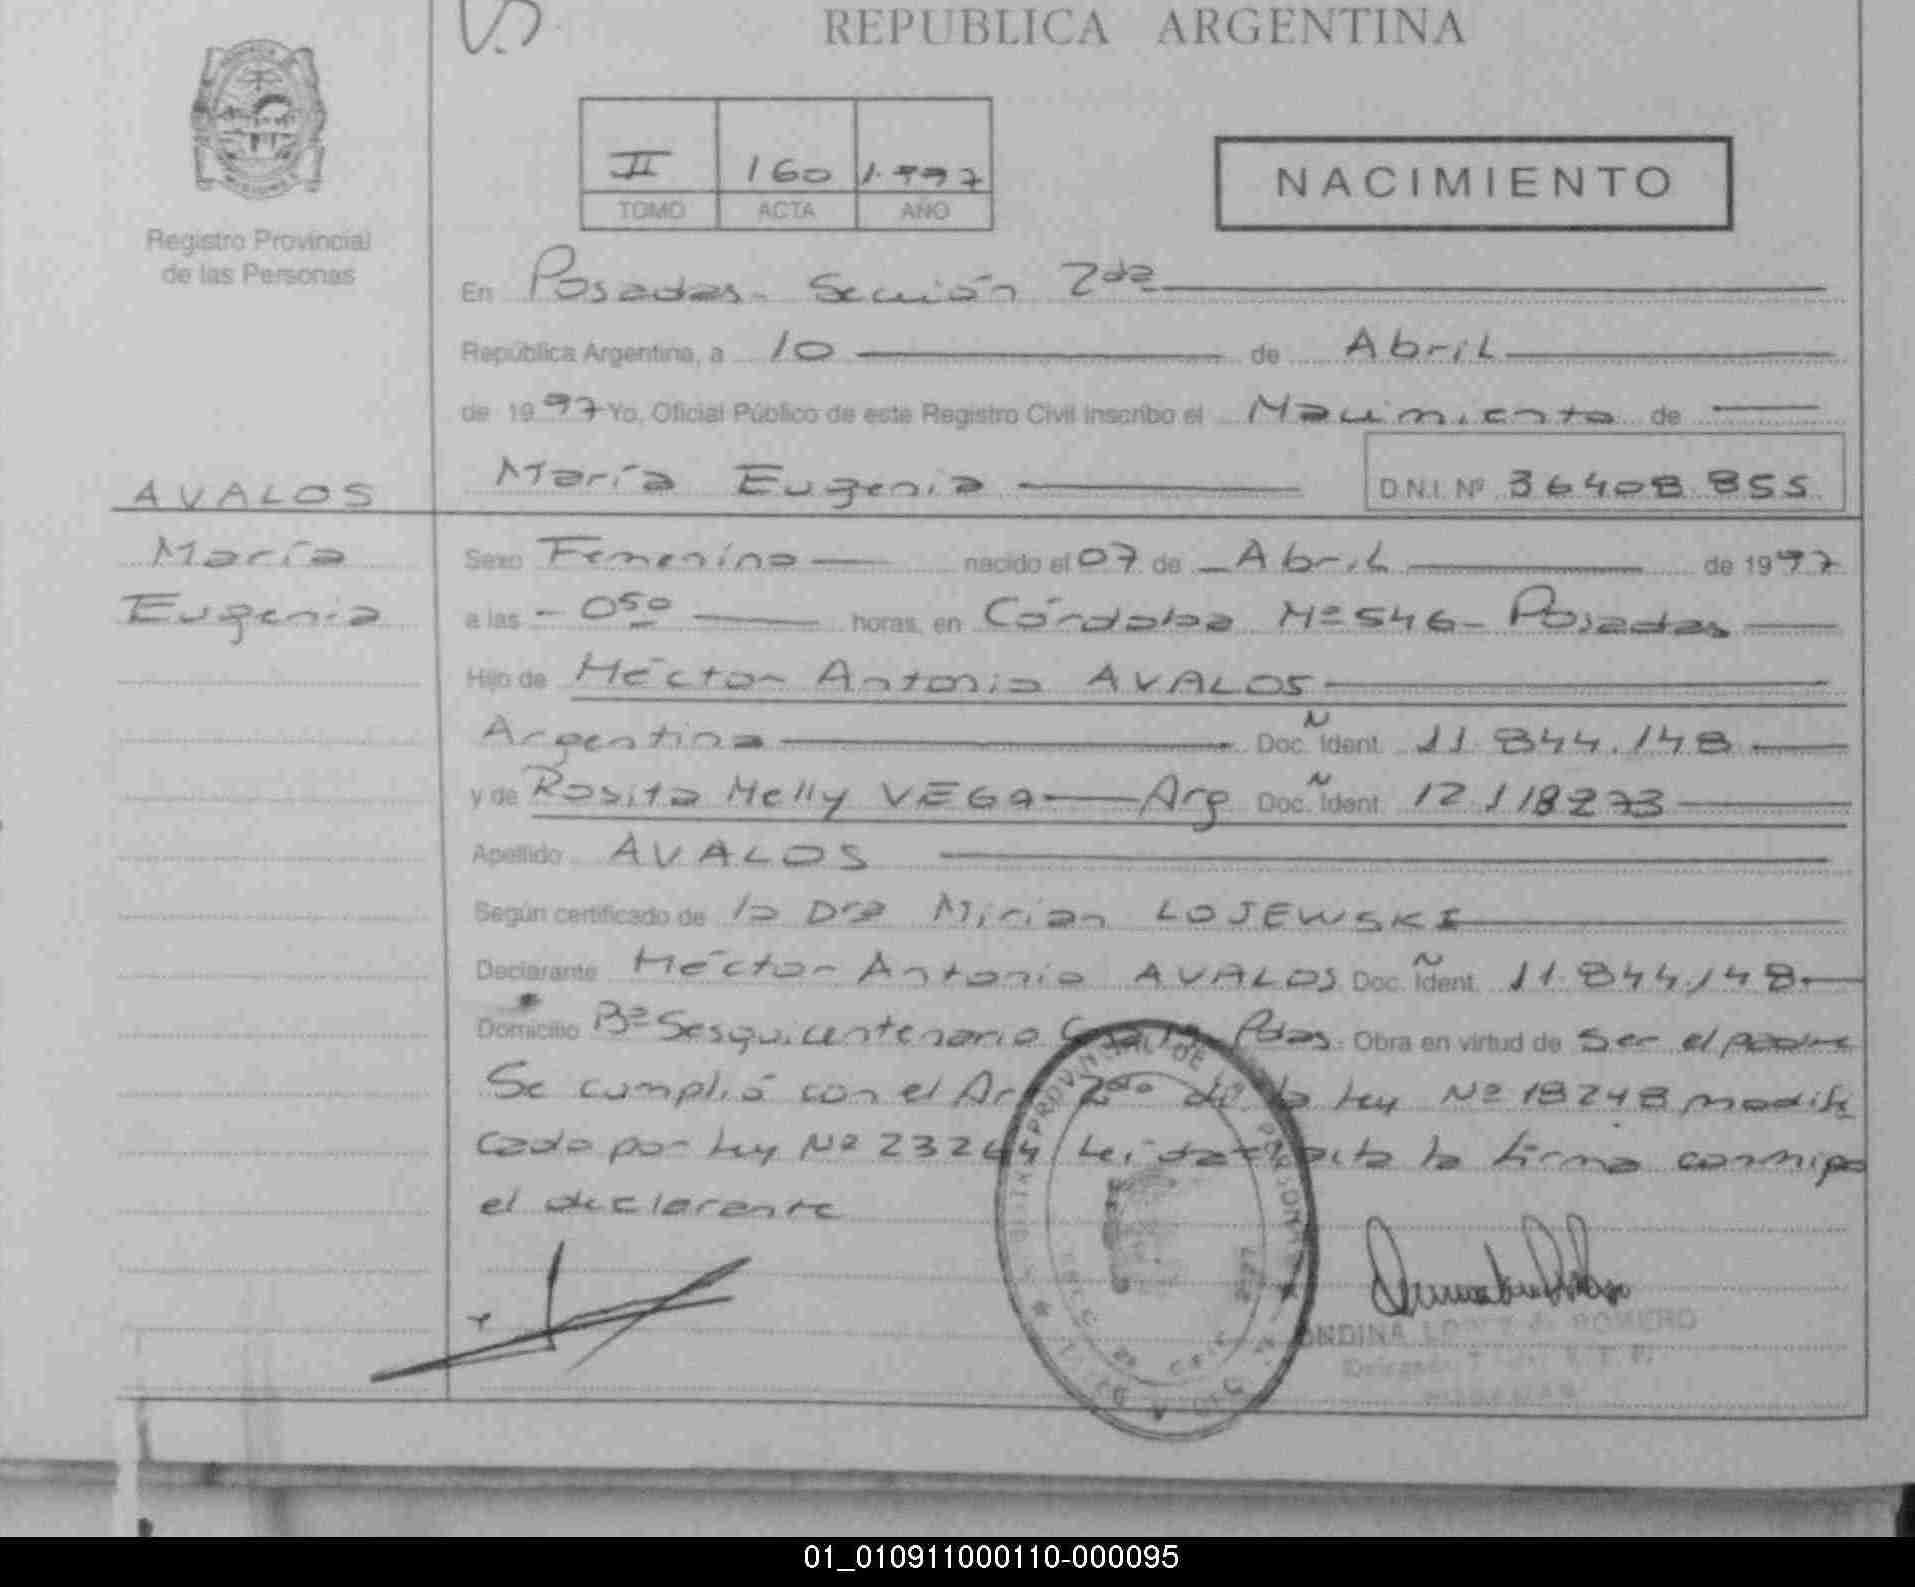 REPUBLICA ARGENTINA
II 160 1.997
TOMO ACTA AÑO
NACIMIENTO
Registro Provincial
de las Personas
En Posadas - Sección 2da
República Argentina, a 10 de Abril
de 1997 Yo, Oficial Público de este Registro Civil inscribo el Nacimiento de
AVALOS
María Eugenia D.N.I. Nº 36408.855
María
Eugenia
Sexo Femenino nacido el 07 de Abril de 1997
a las - 050 horas, en Córdoba Nº 546 - Posadas
Hijo de Héctor Antonio AVALOS
Argentina Doc. Ñ Ident. 11.844.148
y de Rosita Nelly VEGA Arg Doc. Ñ Ident. 12.118273
Apellido AVALOS
Según certificado de la Dra Mirian LOJEWSKI
Declarante Héctor Antonio AVALOS Doc. Ñ Ident. 11.844.148
Domicilio Bº Sesquicentenario Pdas. Obra en virtud de ser el padre
Se cumplió con el Art 2do de la Ley Nº 18248 modifi
cado por Ley Nº 23264 Leída acta la firma conmigo
el declarante
PROVINCIAL DE LAS PERSONAS
ONDINA LOPEZ de ROMERO
01_010911000110-000095